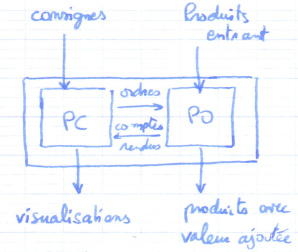 consignes
Produits
entrant
ordres
PC
PO
comptes
rendus
visualisations
produits avec
valeur ajoutée